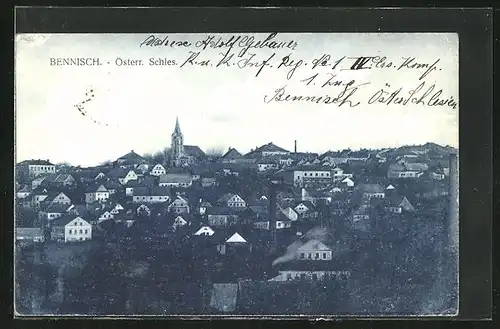 Adresse Adolf Gebauer
BENNISCH. - Österr. Schles.
K. u K. Inf. Reg. No 1 III Ers. Komp.
1. Zug
Bennisch Österr Schlesien